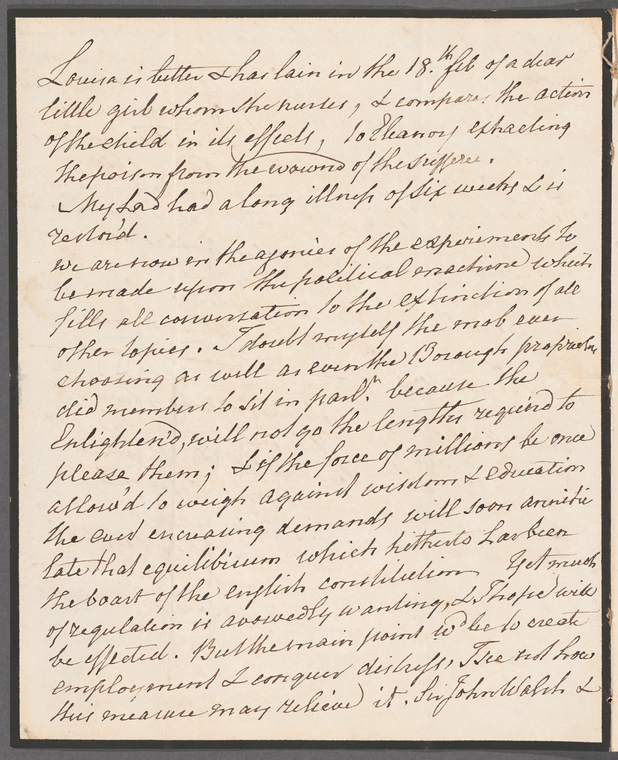 Louisa is better & has lain in the 18.th feb of a dear
little girl whom she nurses, & compares the action
of the child in its effects, to Eleanor extracting
the poison from the wound of the sufferer.
My Lad had a long illness of six weeks & is
restor'd.
we are now in the agonies of the experiments to
be made upon the political machine which
fills all conversation to the extinction of all
other topics. I doubt myself the mob ever
choosing as well as even the Borough proprietors
did members to sit in parlt. because the
Enlighten'd, will not go the lengths required to
please them; & if the force of millions be once
allow'd to weigh against wisdom & education
the ever encreasing demands will soon annihi
late that equilibrium which hitherto has been
the boast of the english constitution Yet much
of regulation is avowedly wanting, & I hope will
be effected. But the main point wd. be to create
employment & conquer distress, I see not how
this measure may relieve it. Sir John Walsh &